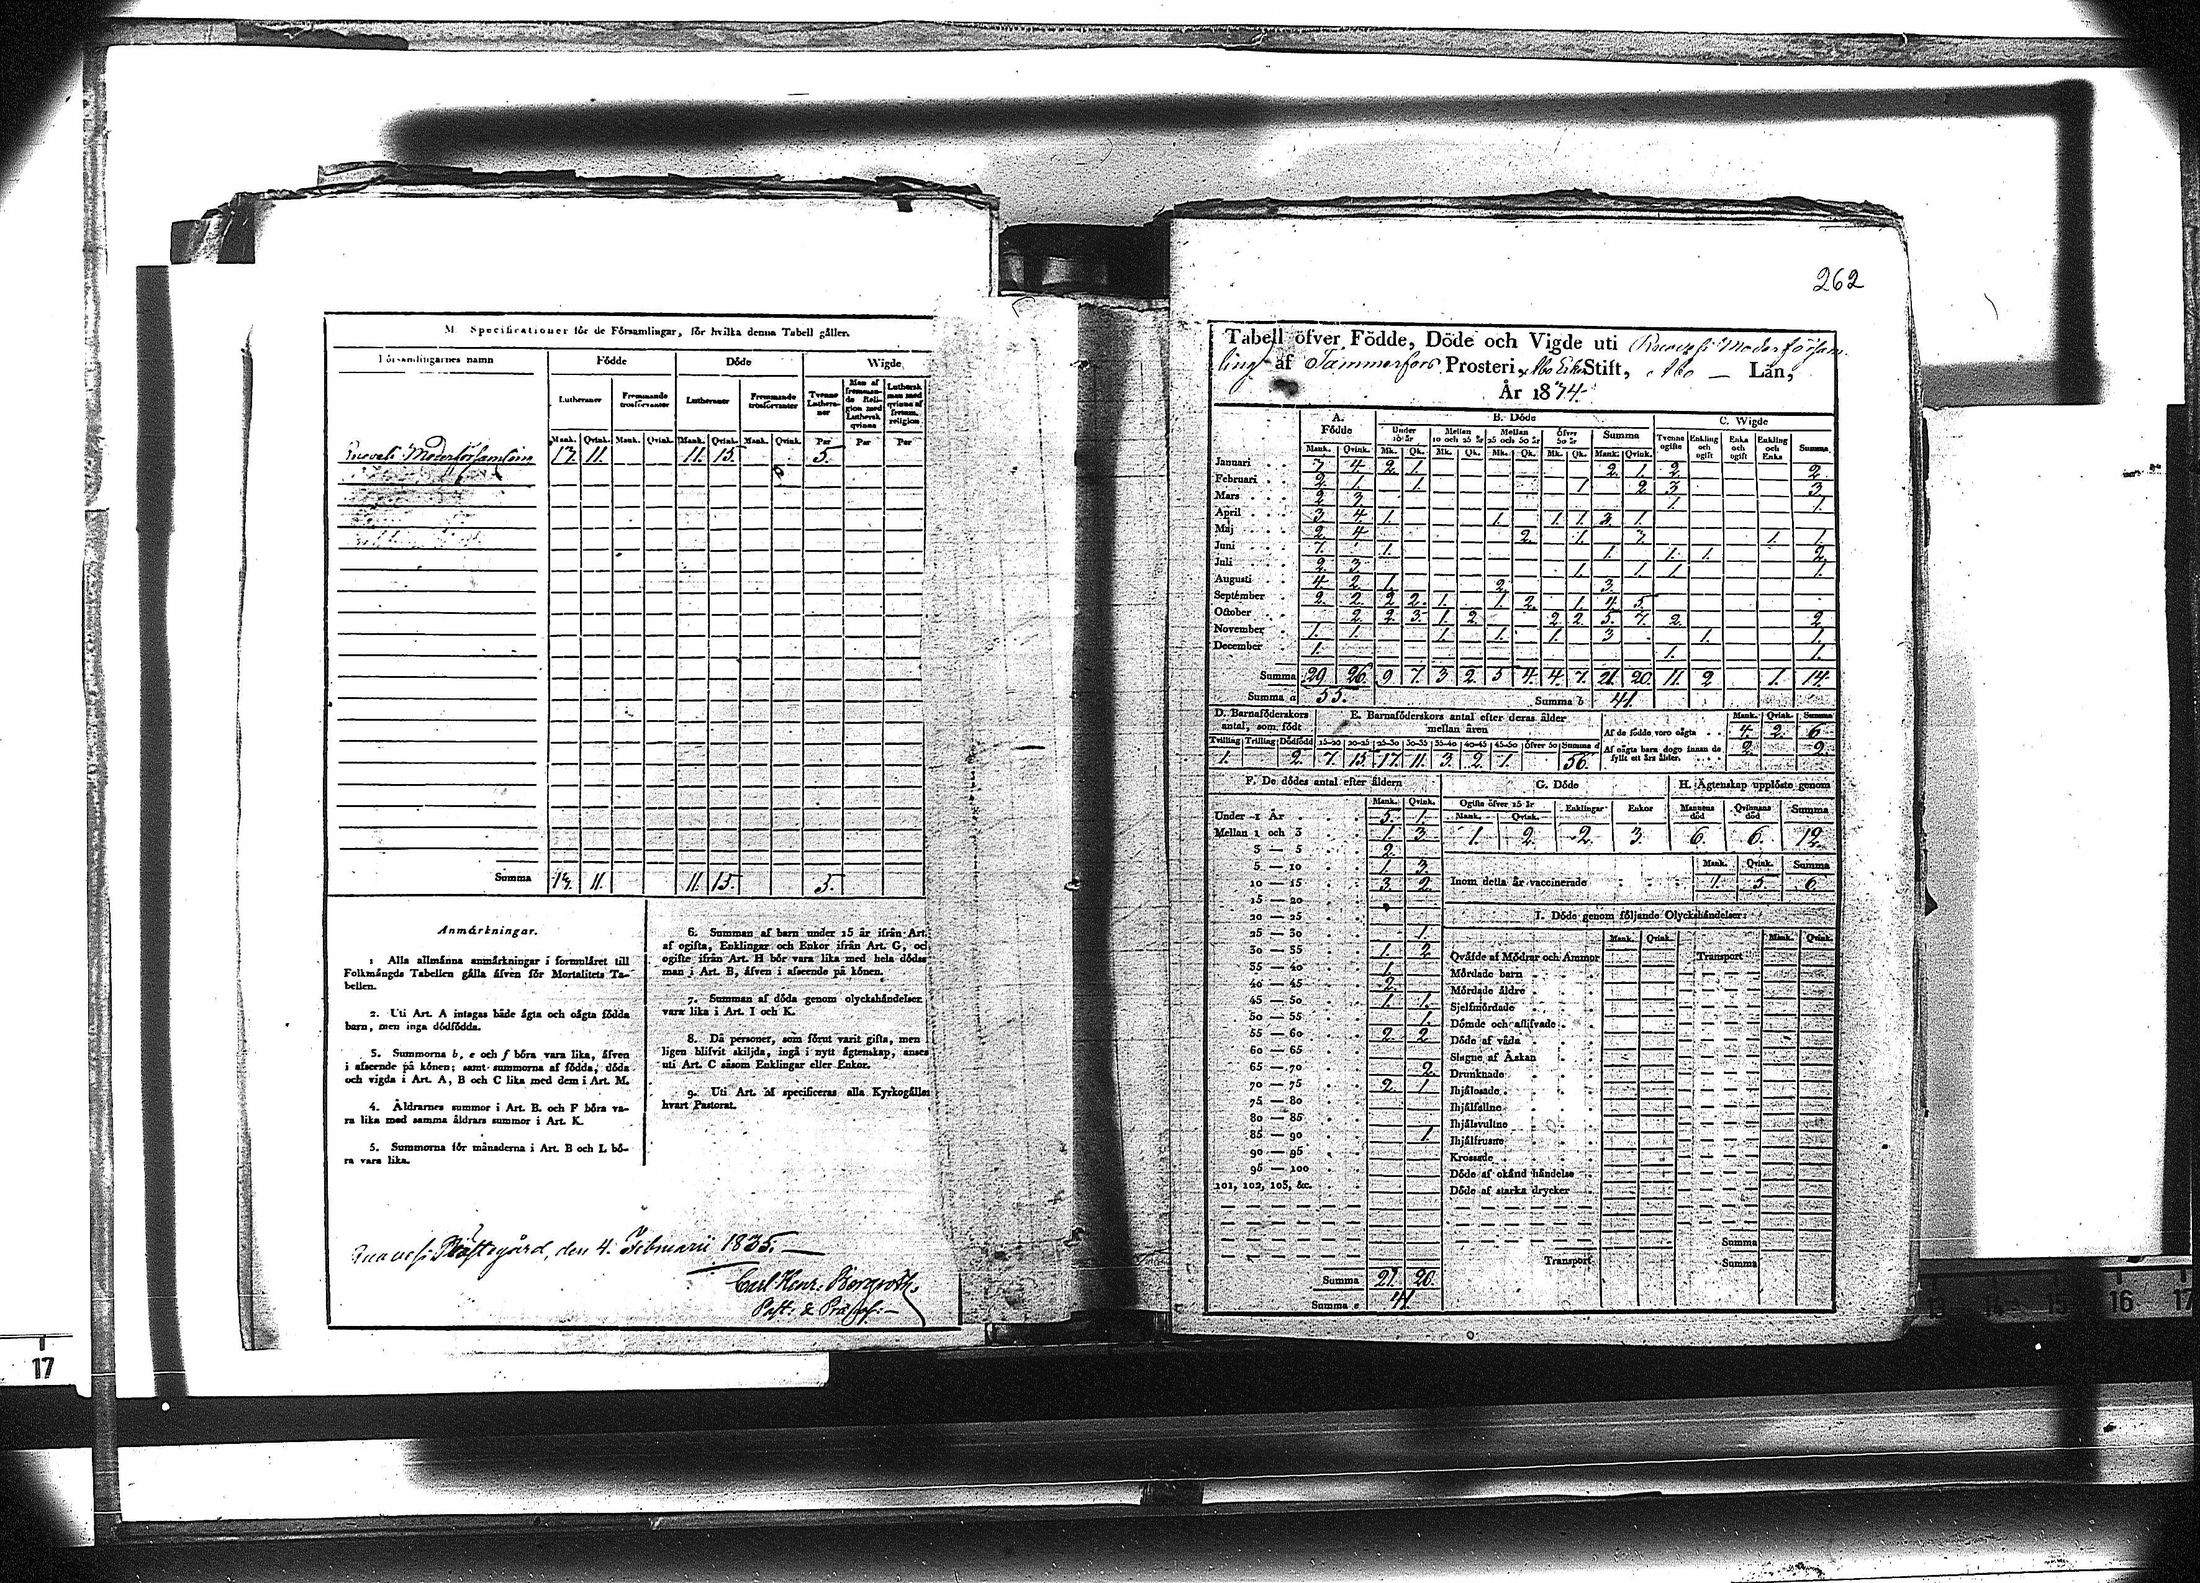 M. Specificationer för de Församlingar, för hvilka denna Tabell gäller.
Församlingarnes namn Födde Döde Wigde
Lutheraner Fremmande trosförvanter Lutheraner Fremmande trosförvanter Tvenne Lutheraner Man af fremmande Religion med Luthersk qvinna Luthersk man med qvinna af fremm. religion
Mank. Qvink. Mank. Qvink. Mank. Qvink. Mank. Qvink. Par Par Par
Moderförsamling 17. 11. 11. 15. 5.
Summa 17. 11. 11. 15. 5.
Anmärkningar.
1 Alla allmänna anmärkningar i formuläret till
Folkmängds Tabellen gälla äfven för Mortalitets Ta-
bellen.
2. Uti Art. A intagas både ägta och oägta födda
barn, men inga dödfödda.
3. Summorna b, e och f böra vara lika, äfven
i afseende på könen; samt summorna af födda, döda
och vigda i Art. A, B och C lika med dem i Art. M.
4. Åldrarnes summor i Art. B. och F böra va-
ra lika med samma åldrars summor i Art. K.
5. Summorna för månaderna i Art. B och L bö-
ra vara lika.
6. Summan af barn under 15 år ifrån Art.
af ogifta, Enklingar och Enkor ifrån Art. G, och
ogifte ifrån Art. H bör vara lika med hela dödas
man i Art. B, äfven i afseende på könen.
7. Summan af döda genom olyckshändelser
vara lika i Art. I och K.
8. Då personer, som förut varit gifta, men
ligen blifvit skiljda, ingå i nytt ägtenskap, anses
uti Art. C såsom Enklingar eller Enkor.
9. Uti Art. M specificeras alla Kyrkogällen
hvart Pastorat.
Prästegård, den 4. Februarii 1835.
Carl Henr. Bergroth.
Past. & Præpos.
262
Tabell öfver Födde, Döde och Vigde uti Ruovesi Moderförsam-
ling af Tammerfors Prosteri, Åbo Erke Stift, Åbo Län,
År 1834.
A. Födde B. Döde C. Wigde
Under 10 år Mellan 10 och 25 år Mellan 25 och 50 år Öfver 50 år Summa Tvenne ogifte Enkling och ogift Enka och ogift Enkling och Enka Summa
Mank. Qvink. Mk. Qk. Mk. Qk. Mk. Qk. Mk. Qk. Mank. Qvink.
Januari 7. 4. 2. 1. 2. 1. 2. 2.
Februari 2. 1. 1. 1. 2. 3. 3.
Mars 2. 3. 1. 1.
April 3. 4. 1. 1. 1. 1. 3. 1.
Maj 2. 4. 2. 1. 3. 1. 1.
Juni 1. 1. 1. 1. 2.
Juli 2. 3. 1. 1. 1. 1.
Augusti 4. 2. 1. 2. 3.
September 2. 2. 2. 2. 1. 1. 2. 1. 4. 5.
Oktober 2. 2. 3. 1. 2. 2. 2. 5. 7. 2. 2.
November 1. 1. 1. 1. 1. 3. 1. 1.
December 1. 1. 1.
Summa 29. 26. 9. 7. 3. 2. 5. 4. 4. 7. 21. 20. 11. 2. 1. 14.
Summa a 55. Summa b 41.
D. Barnaföderskors antal, som födt
Tvilling Trilling Dödfödd
1. 2.
E. Barnaföderskors antal efter deras ålder mellan åren
15-20 20-25 25-30 30-35 35-40 40-45 45-50 öfver 50 Summa d
7. 15. 17. 11. 3. 2. 1. 56.
Mank. Qvink. Summa
Af de födde voro oägta 4. 2. 6.
Af oägta barn dogo innan de fyllt ett års ålder. 2. 2.
F. De dödes antal efter åldern
Mank. Qvink.
Under 1 År 5. 1.
Mellan 1 och 3 1. 3.
3 — 5 2.
5 — 10 1. 3.
10 — 15 3. 2.
15 — 20
20 — 25
25 — 30 1.
30 — 35 1. 2.
35 — 40 1.
40 — 45 2.
45 — 50 1. 1.
50 — 55 1.
55 — 60 2. 2.
60 — 65
65 — 70 2.
70 — 75 2. 1.
75 — 80
80 — 85
85 — 90 1.
90 — 95
95 — 100
101, 102, 103, &c.
Summa 21. 20.
Summa e 41
G. Döde
Ogifte öfver 15 år Enklingar Enkor
Mank. Qvink.
1. 2. 2. 3.
H. Ägtenskap upplöste genom
Mannens död Qvinnans död Summa
6. 6. 12.
Mank. Qvink. Summa
Inom detta år vaccinerade 1. 5. 6
I. Döde genom följande Olyckshändelser:
Mank. Qvink. Mank. Qvink.
Qväfde af Mödrar och Ammor Transport
Mördade barn
Mördade äldre
Sjelfmördade
Dömde och aflifvade
Döde af våda
Slagne af Åskan
Drunknade
Ihjälosade
Ihjälfallne
Ihjälsvultne
Ihjälfrusne
Krossade
Döde af okänd händelse
Döde af starka drycker
Summa
Transport Summa
17
13 14 15 16 17